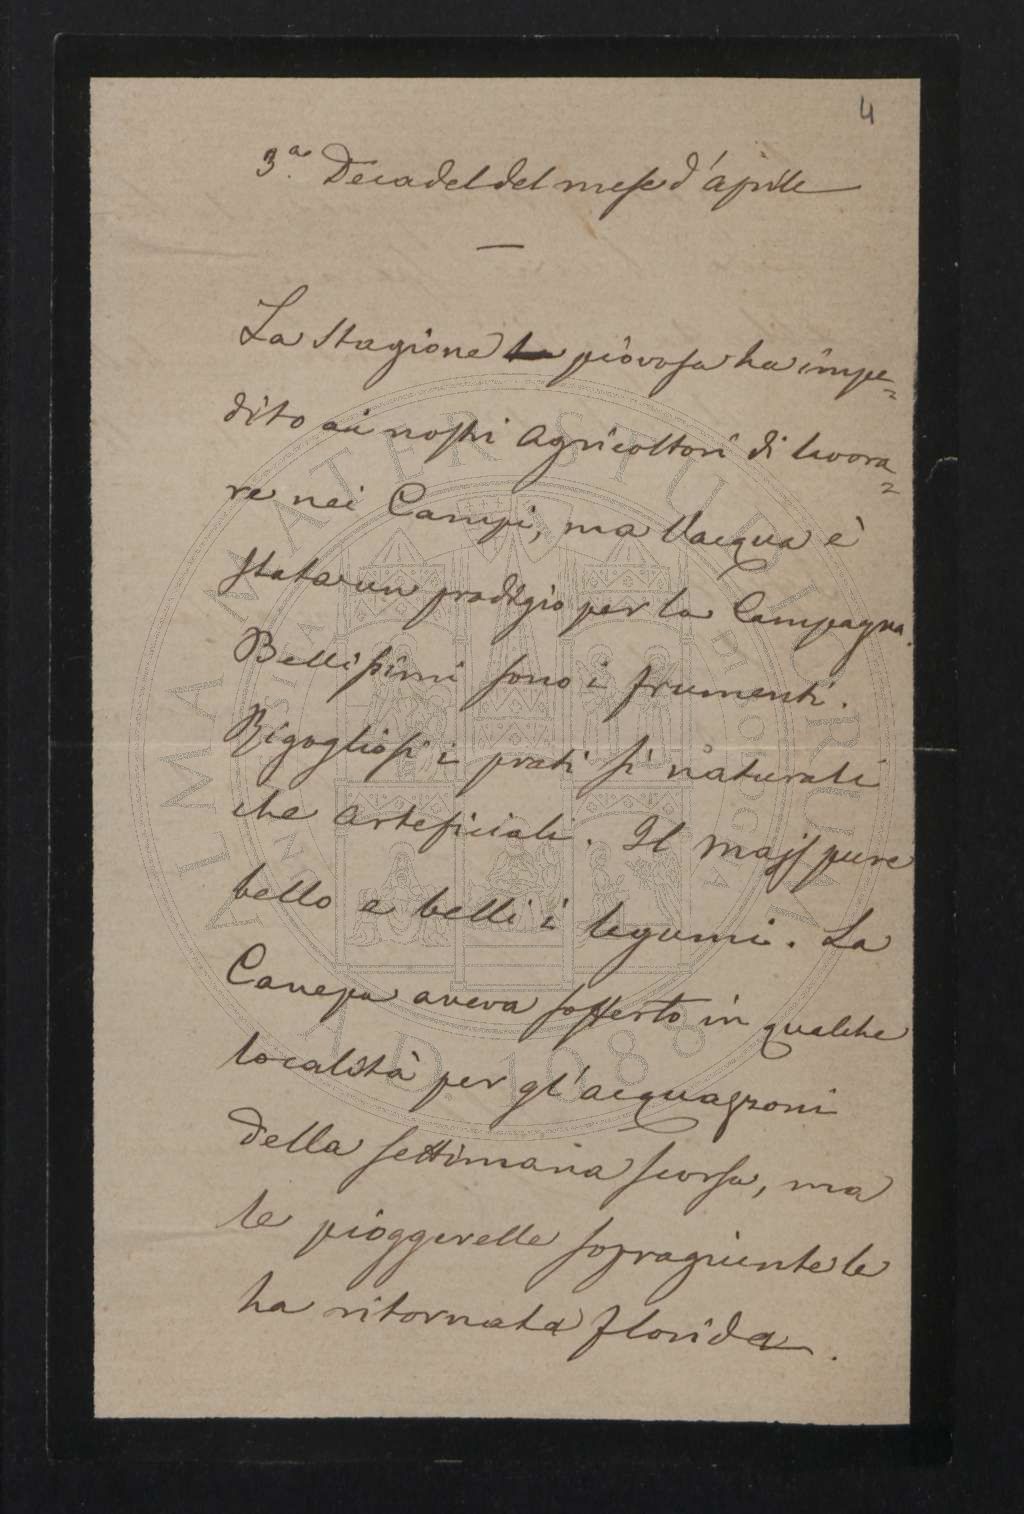 4
3.ª Decade del mese d'aprile
La Stagione piovosa ha impe=
dito ai nostri agricoltori di lavora=
re nei Campi, ma l'acqua è
stata un prodigio per la Campagna.
Bellissimi sono i frumenti.
Rigogliosi i prati sì naturali
che arteficiali. Il majs pure
bello e belli i legumi. La
Canepa aveva sofferto in qualche
località per gl'acquazzoni
della settimana scorsa, ma
le pioggerelle sopragiunte le
ha ritornata florida.
ALMA MATER STUDIORUM
A.D. 1088